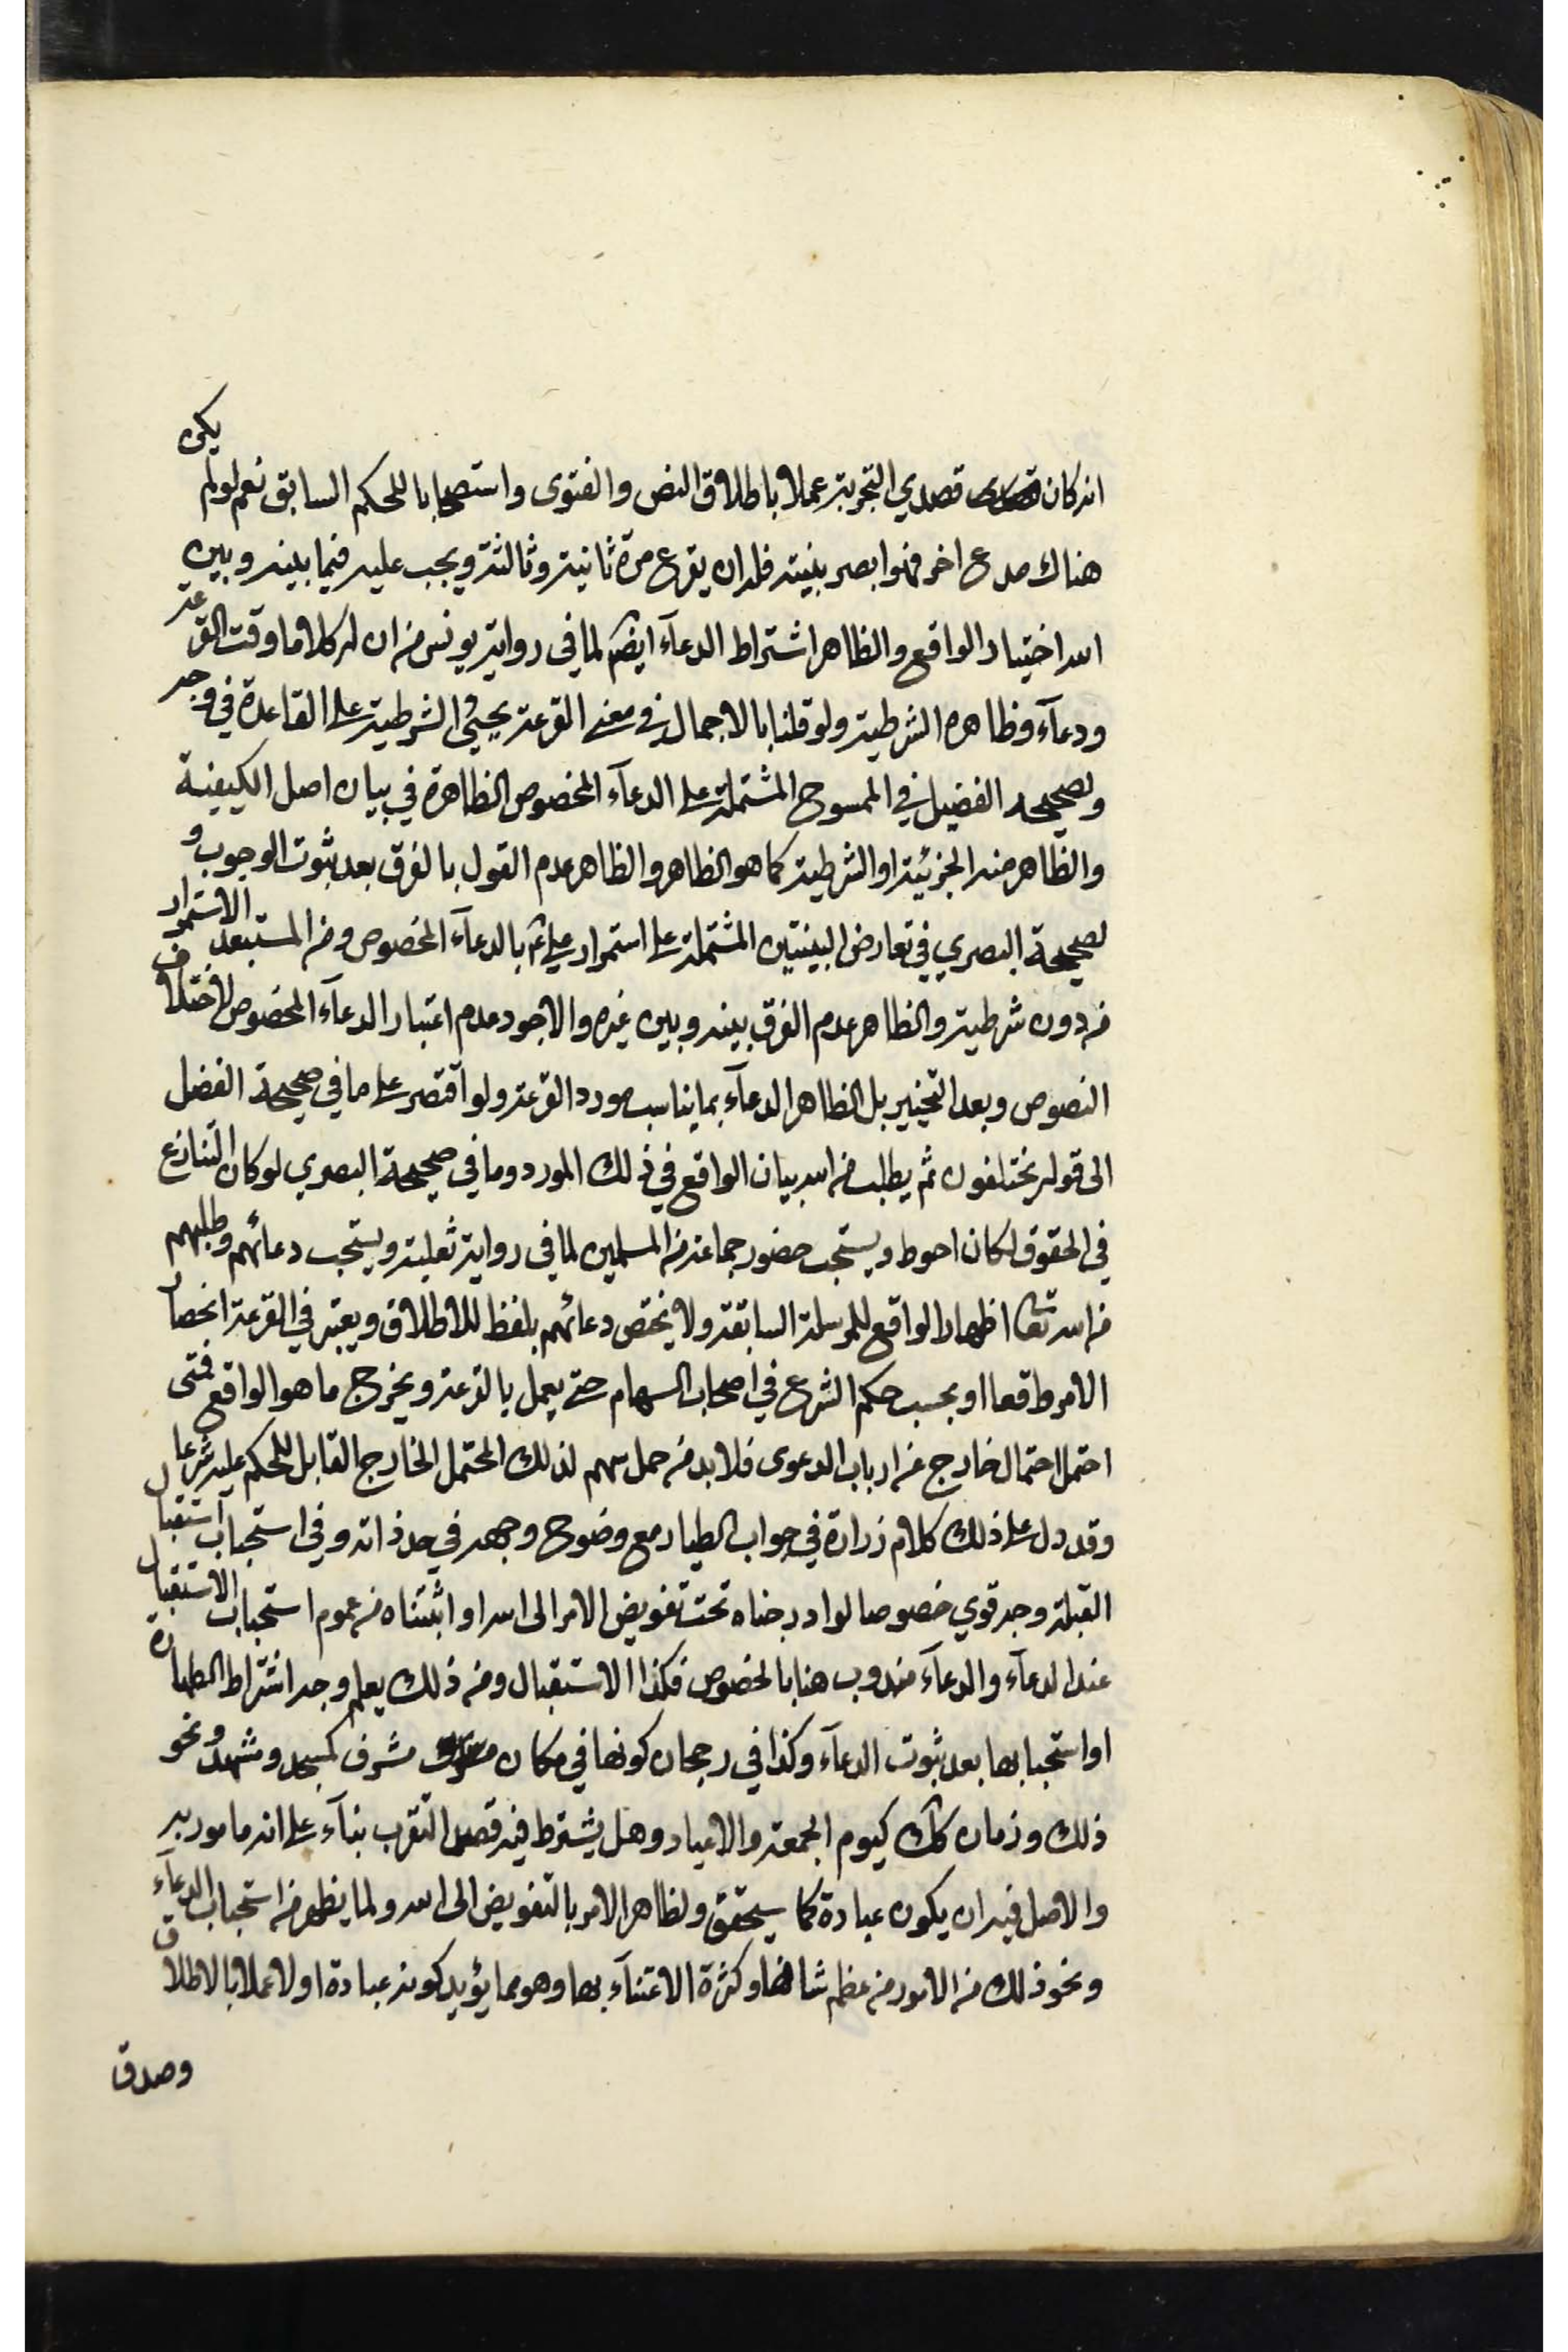 انه كان قصدي التجربة عملا باطلاق النص والفتوى واستصحابا للحكم السابق نعم لو لم يكن
هناك مدع اخر فهو ابصر بنيته فله ان يقرع مرة ثانية وثالثة ويجب عليه فيما بينه وبين
الله اختيار الواقع والظاهر اشتراط الدعآء ايضا لما في رواية يونس من ان له كلاما وقت القرعة
ودعآء وظاهره الشرطية ولو قلنا بالاجمال في معنى القرعة يجيئ الشرطية على القاعدة في وجه
ولصحيحة الفضيل في الممسوح المشتملة على الدعآء المخصوص الظاهرة في بيان اصل الكيفية
والظاهر منه الجزئية او الشرطية كما هو الظاهر والظاهر عدم القول بالفرق بعد ثبوت الوجوب و
لصحيحة البصري في تعارض البينتين المشتملة على استمرار علي ع بالدعآء المخصوص ومن المستبعد الاستمرار
من دون شرطية والظاهر عدم الفرق بينه وبين غيره والاجود عدم اعتبار الدعآء المخصوص لاختلاف
النصوص وبعد التخيير بل الظاهر الدعآء بما يناسب مورد القرعة ولو اقتصر على ما في صحيحة الفضل
الى قوله يختلفون ثم يطلب من الله بيان الواقع في ذلك المورد وما في صحيحة البصري لو كان التنازع
في الحقوق لكان احوط ويستحب حضور جماعة من المسلمين لما في رواية ثعلبة ويستحب دعائهم وطلبهم
من الله تعا اظهار الواقع للمرسلة السابقة ولا يختص دعائهم بلفظ للاطلاق ويعتبر في القرعة انحصار
الامر واقعا او بحسب حكم الشرع في اصحاب السهام حتى يعمل بالقرعة ويخرج ما هو الواقع فمتى
احتمل احتمال خارج عن ارباب الدعوى فلا بد من حمل سهم لذلك المحتمل الخارج القابل للحكم عليه شرعا
وقد دل على ذلك كلام زرارة في جواب الطيار مع وضوح وجهه في حد ذاته وفي استحباب استقبال
القبلة وجه قوي خصوصا لو ادرجناه تحت تفويض الامر الى الله او اثبتناه من عموم استحباب الاستقبال
عند الدعآء والدعآء مندوب هنا بالخصوص فكذا الاستقبال ومن ذلك يعلم وجه اشتراط الطهارة
او استحبابها بعد ثبوت الدعآء وكذا في رجحان كونها في مكان مشرف كمسجد ومشهد ونحو
ذلك وزمان كك كيوم الجمعة والاعياد وهل يشترط فيه قصد التقرب بنآء على انه مامور به
والاصل فيه ان يكون عبادة كما سيحقق ولظاهر الامر بالتفويض الى الله ولما يظهر من استحباب الدعآء
ونحو ذلك من الامور من عظم شانها وكثرة الاعتنآء بها وهو مما يؤيد كونه عبادة او لا عملا بالاطلاق
وصدق